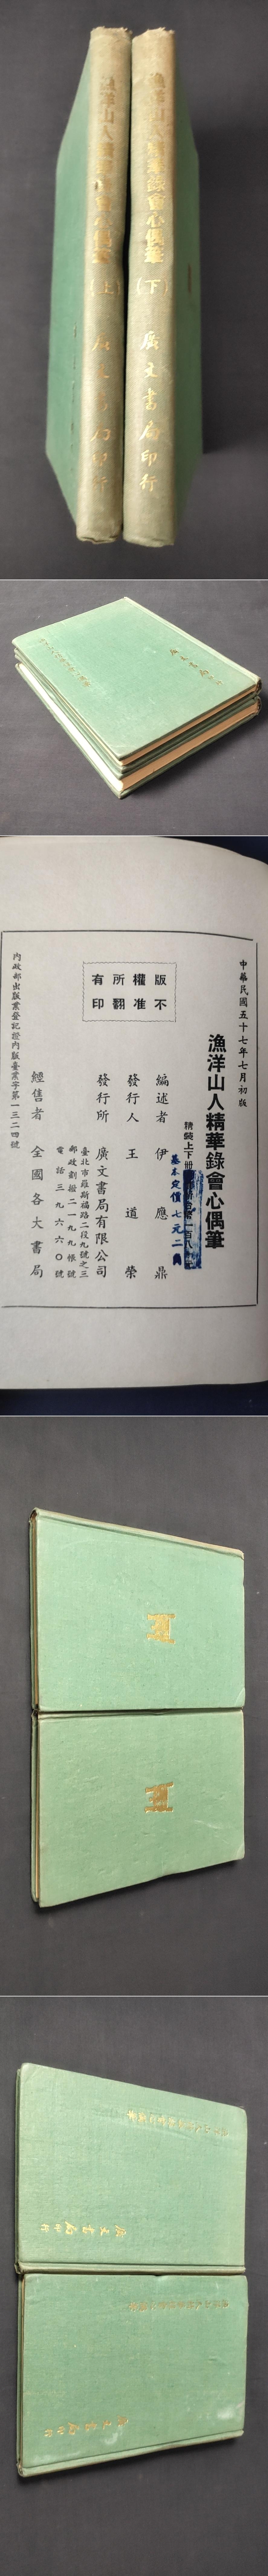 漁洋山人精華錄會心偶筆(上) 廣文書局印行
漁洋山人精華錄會心偶筆(下) 廣文書局印行
中華民國五十七年七月初版
漁洋山人精華錄會心偶筆
精裝上下冊
基本定價 七元二角
版權所有
不准翻印
編述者 伊應鼎
發行人 王道榮
發行所 廣文書局有限公司
臺北市羅斯福路二段九號之三
郵政劃撥二一九九帳號
電話 三九六六〇號
經售者 全國各大書局
內政部出版業登記證內版臺業字第一三二四號
廣文書局印行
廣文書局印行